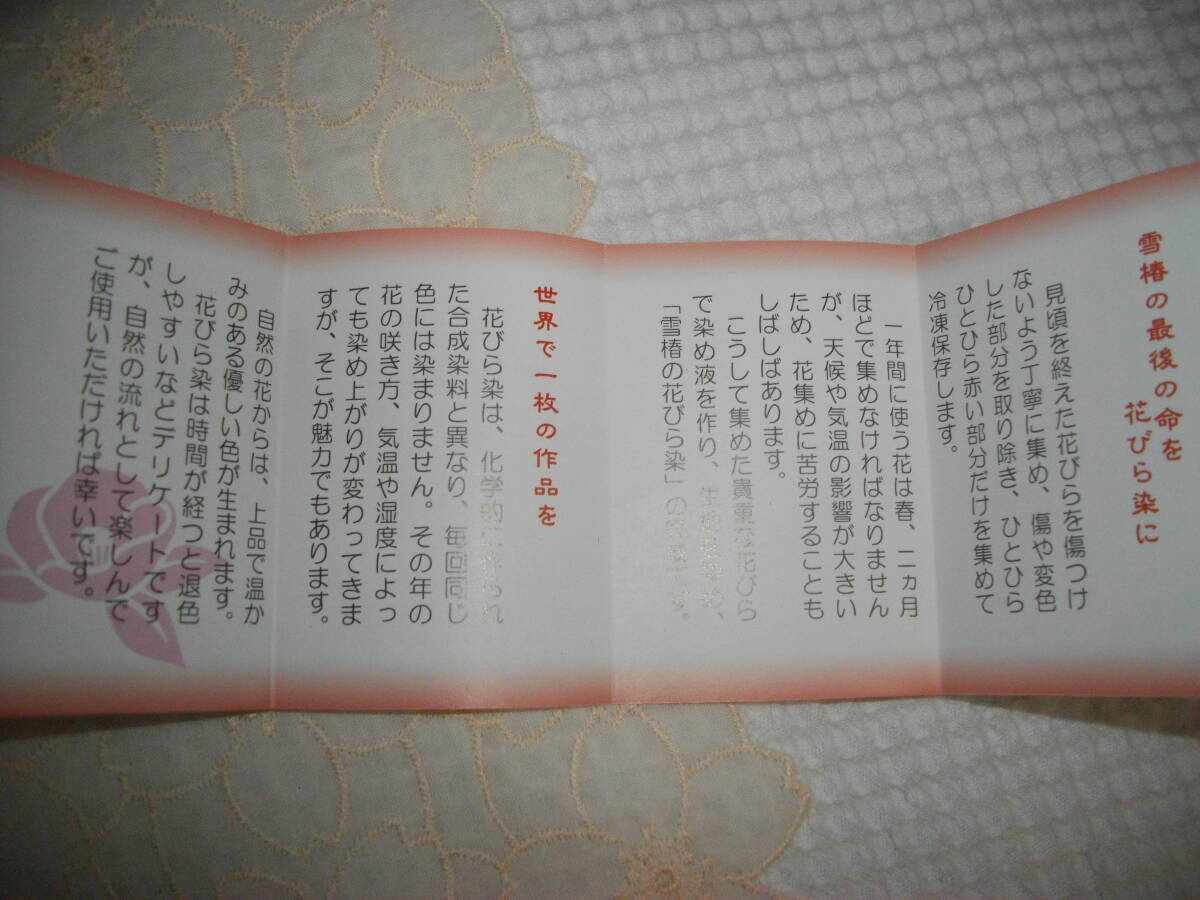 雪椿の最後の命を
花びら染に
見頃を終えた花びらを傷つけ
ないよう丁寧に集め、傷や変色
した部分を取り除き、ひとひら
ひとひら赤い部分だけを集めて
冷凍保存します。
一年間に使う花は春、二ヵ月
ほどで集めなければなりません
が、天候や気温の影響が大きい
ため、花集めに苦労することも
しばしばあります。
こうして集めた貴重な花びら
で染め液を作り、
「雪椿の花びら染」の
世界で一枚の作品を
花びら染は、化学的に作られ
た合成染料と異なり、毎回同じ
色には染まりません。その年の
花の咲き方、気温や湿度によっ
ても染め上がりが変わってきま
すが、そこが魅力でもあります。
自然の花からは、上品で温か
みのある優しい色が生まれます。
花びら染は時間が経つと退色
しやすいなどデリケートです
が、自然の流れとして楽しんで
ご使用いただければ幸いです。